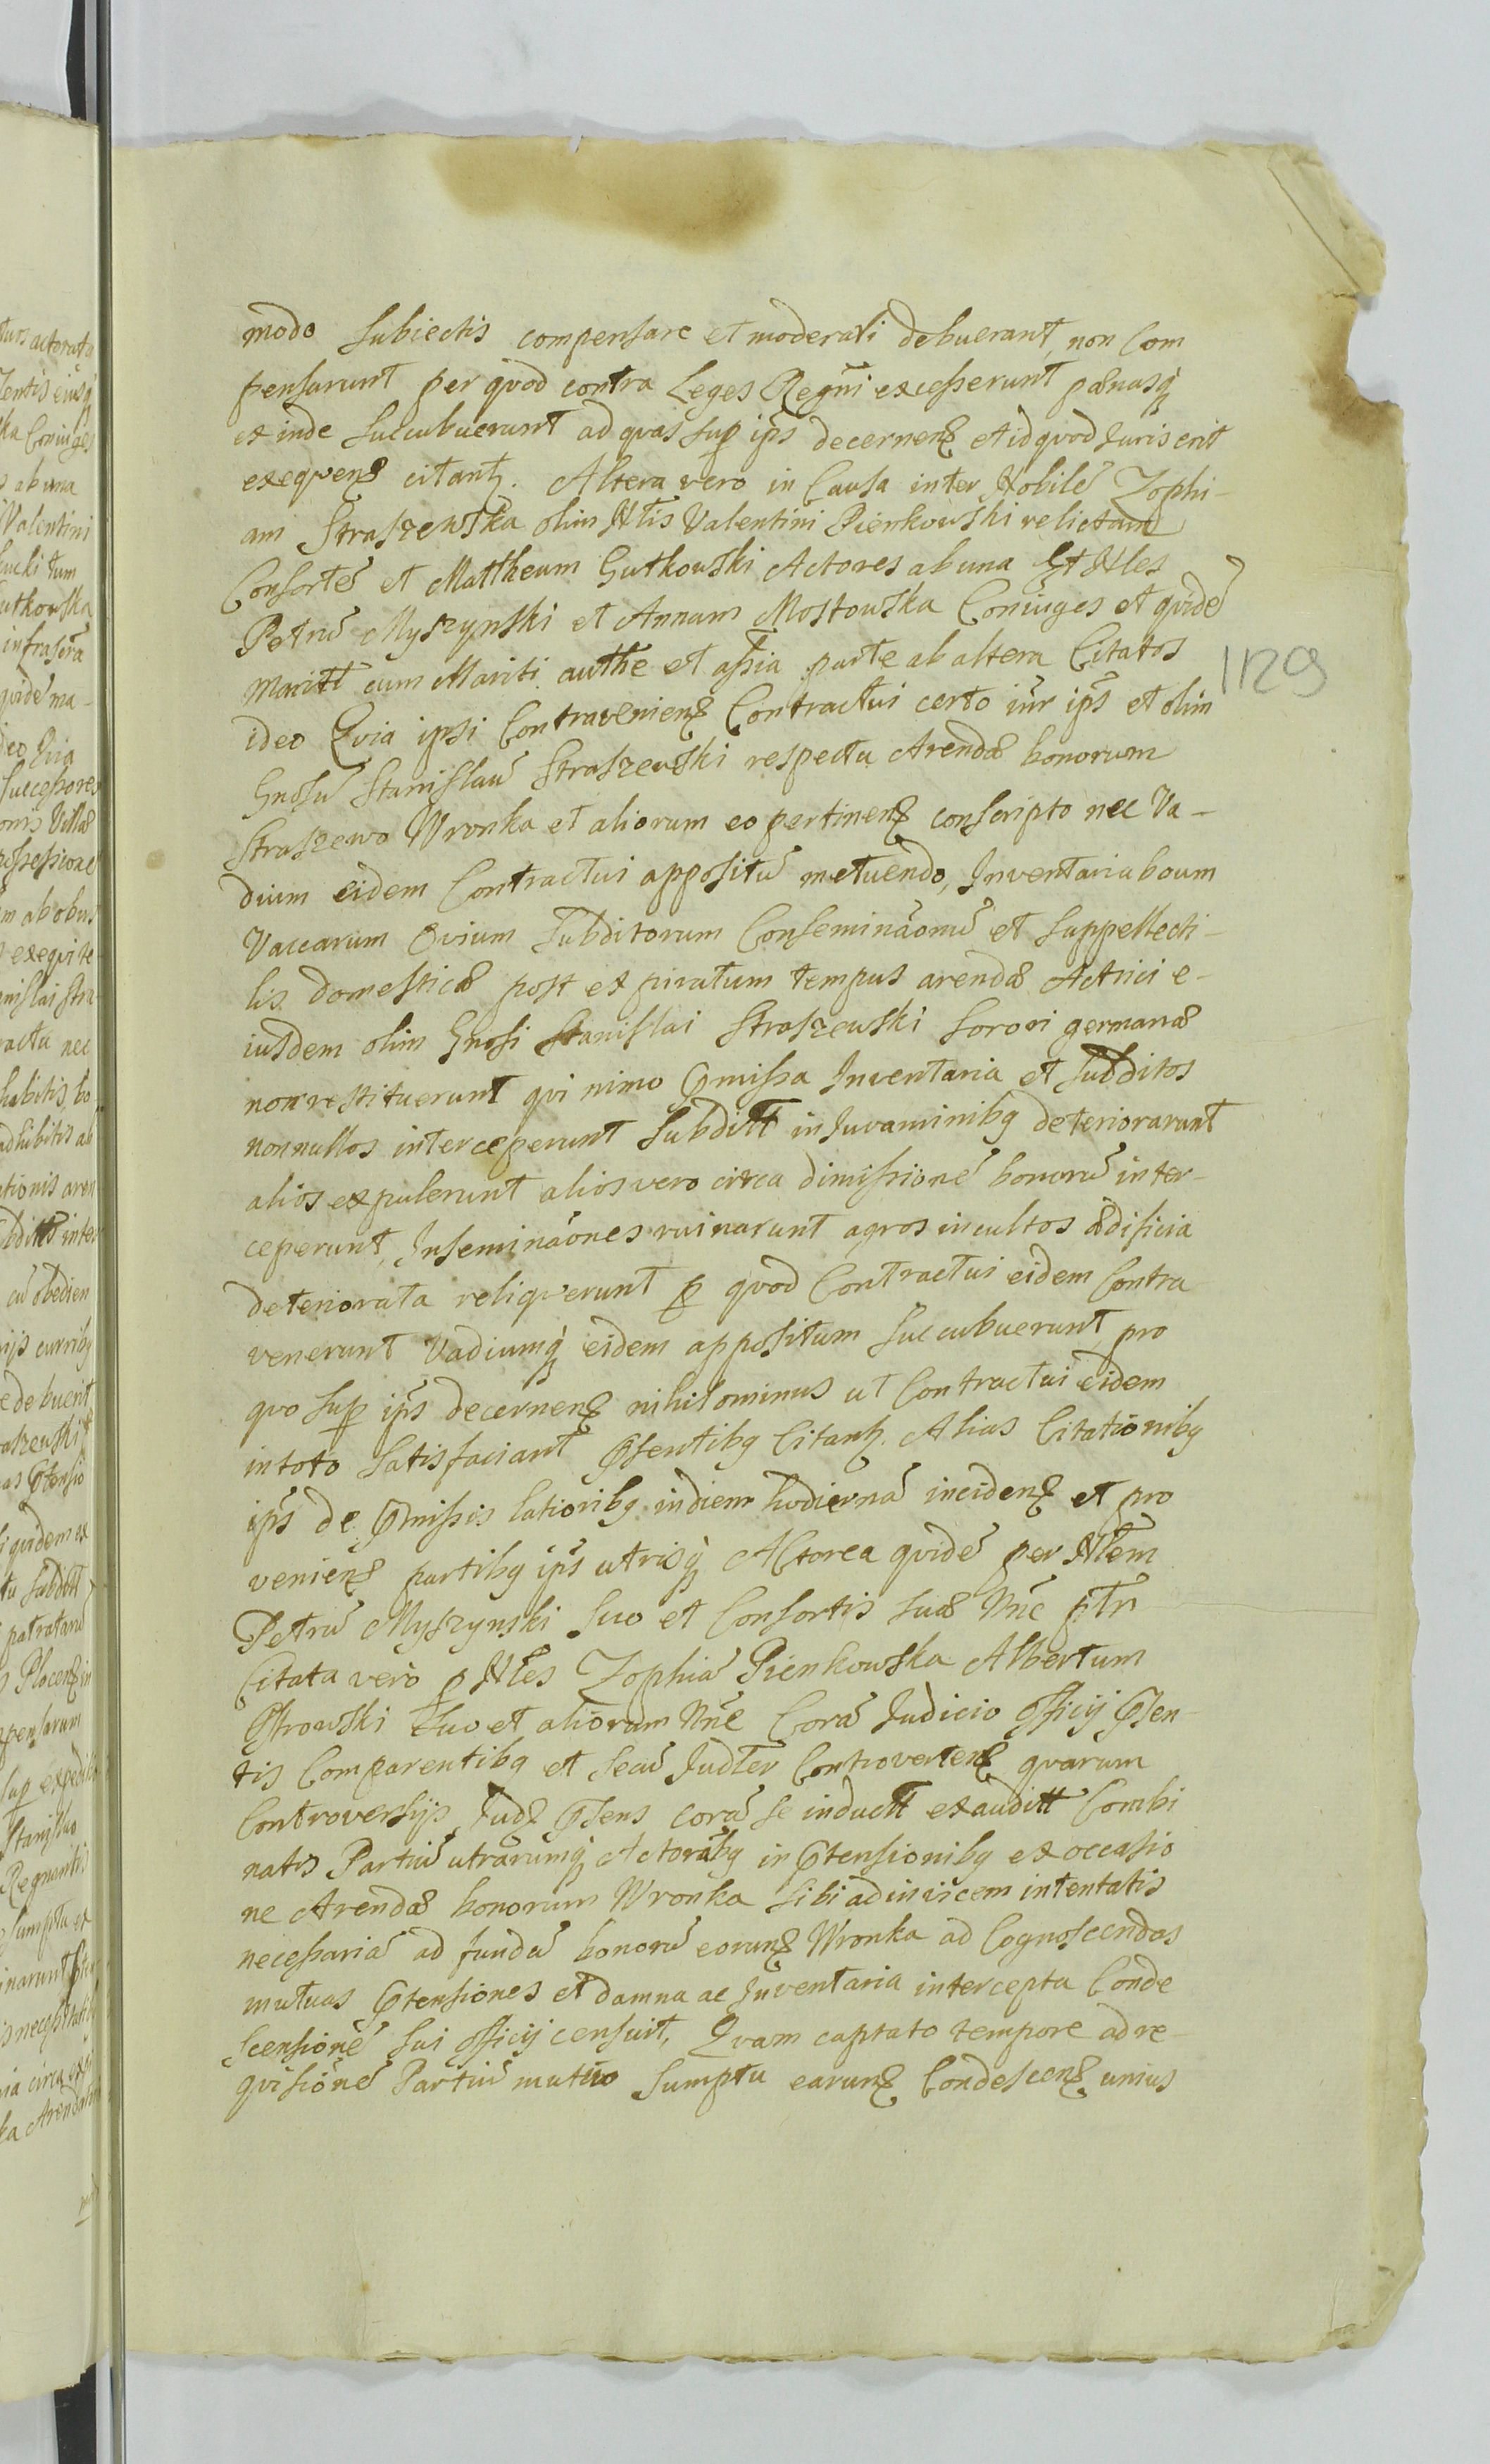 modo subiectis compensare et moderari debuerant, non com
pensarunt per quod contra Leges Regni excesserunt pænasq́
exinde succubuerunt ad quas sup ip̃s decernenꝫ et id quod Juris erit
exequenꝫ citantꝫ. Altera vero in Causa inter Nobilẽ Zophi-
am Straszewska olim Nlis Valentini Pienkowski relictam
Consortẽ et Mattheum Gutkowski Actores ab una Et Nles
Petrũ Myszynski et Annam Mostowska Coniuges et quidẽ
maritt cum Mariti authe et assia parte ab altera Citatos
ideo Quia ipsi Contravenienꝫ Contractui certo inr ip̃s et olim
Gnosũ Stanislaũ Straszewski respectu Arendæ bonorum
Straszewo Wronka et aliorum eo pertinenꝫ conscripto nec Va-
dium eidem Contractui appositũ metuendo, Inventaria boum
Vaccarum Ovium Subditorum Conseminãonũ et suppellecti-
lis domesticæ post expiratum tempus arendæ Actrici e-
iusdem olim Gnosi Stanislai Straszewski sorori germanæ
non restituerunt qui nimo p̃missa Inventaria et subditos
nonnullos interceperunt subditt in Juvaminibq deteriorarunt
alios expulerunt alios vero circa dimissionẽ bonorũ inter-
ceperunt, Inseminãones ruinarunt agros incultos ædificia
deteriorata reliquerunt ꝑ quod Contractui eidem Contra
venerunt Vadiumq́ eidem appositum succubuerunt, pro
quo sup ip̃s decernenꝫ nihilominus ut Contractui eidem
in toto satisfaciant p̃sentibq Citantꝫ. Alias Citationibq
ip̃s de p̃missis latioribq in diem hodiernã incidenꝫ et pro
venienꝫ partibq ip̃s utrisq́ Actorea quidẽ per Nlem
Petrũ Myszynski suo et Consortis suæ Nñe ptr
Citata vero ꝑ Nles Zophiã Pienkowska Albertum
Ostrowski suo et aliorum Nñe Corã Judicio Officij p̃sen-
tis Comparentibq et secũ Judlter Controvertenꝫ quarum
Controversijs Judꝫ p̃sens corã se inductt exauditt Combi
natis Partiũ utrarumq́ Actoratbq in p̃tensionibq ex occasio
ne Arendæ bonorum Wronka sibi adinvicem intentatis
necessariã ad fundũ bonorũ eorunꝫ Wronka ad Cognoscendas
mutuas p̃tensiones et damna ac Inventaria intercepta Conde
scensionẽ sui Officij censuit, Quam captato tempore ad re-
quisitionẽ Partiũ mutuo sumptu earunꝫ Condescenꝫ unius
1129